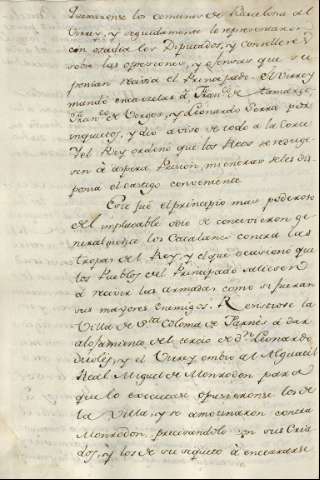 Quexaronse los comunes de Barcelona al
Virrey, y seguidamente le representaron
con osadia los Diputados, y Conselleres
sobre las opresiones, y ofensas que su
ponian recivia el Principado. El Virrey
mandó encarcelar á Fran.co de Tamarit,
Fran.co de Vergos, y Leonardo Serra por
inquietos, y dió aviso de todo a la Corte
y el Rey ordenó que los Reos se reduge
sen á aspera Prision, mientras se les dis
ponia el castigo conveniente.
Este fué el principio mas poderoso
del implacable odio que concivieron ge
neralmente los Catalanes contra las
tropas del Rey, y el que ocasionó que
los Pueblos del Principado saliesen
á recivir las armadas como si fueran
sus mayores enemigos. Resistiose la
Villa de Sta Coloma de Farnés á dar
alojamiento al tercio de Dn Leonardo
Moles, y el Virrey embió al Alguacil
Real Miguel de Monrodon para
que lo executase opusieronse los de
la Villa, y se amotinaron contra
Monrodon, precisandole con sus Cria
dos, y los de su sequito á encerrarse